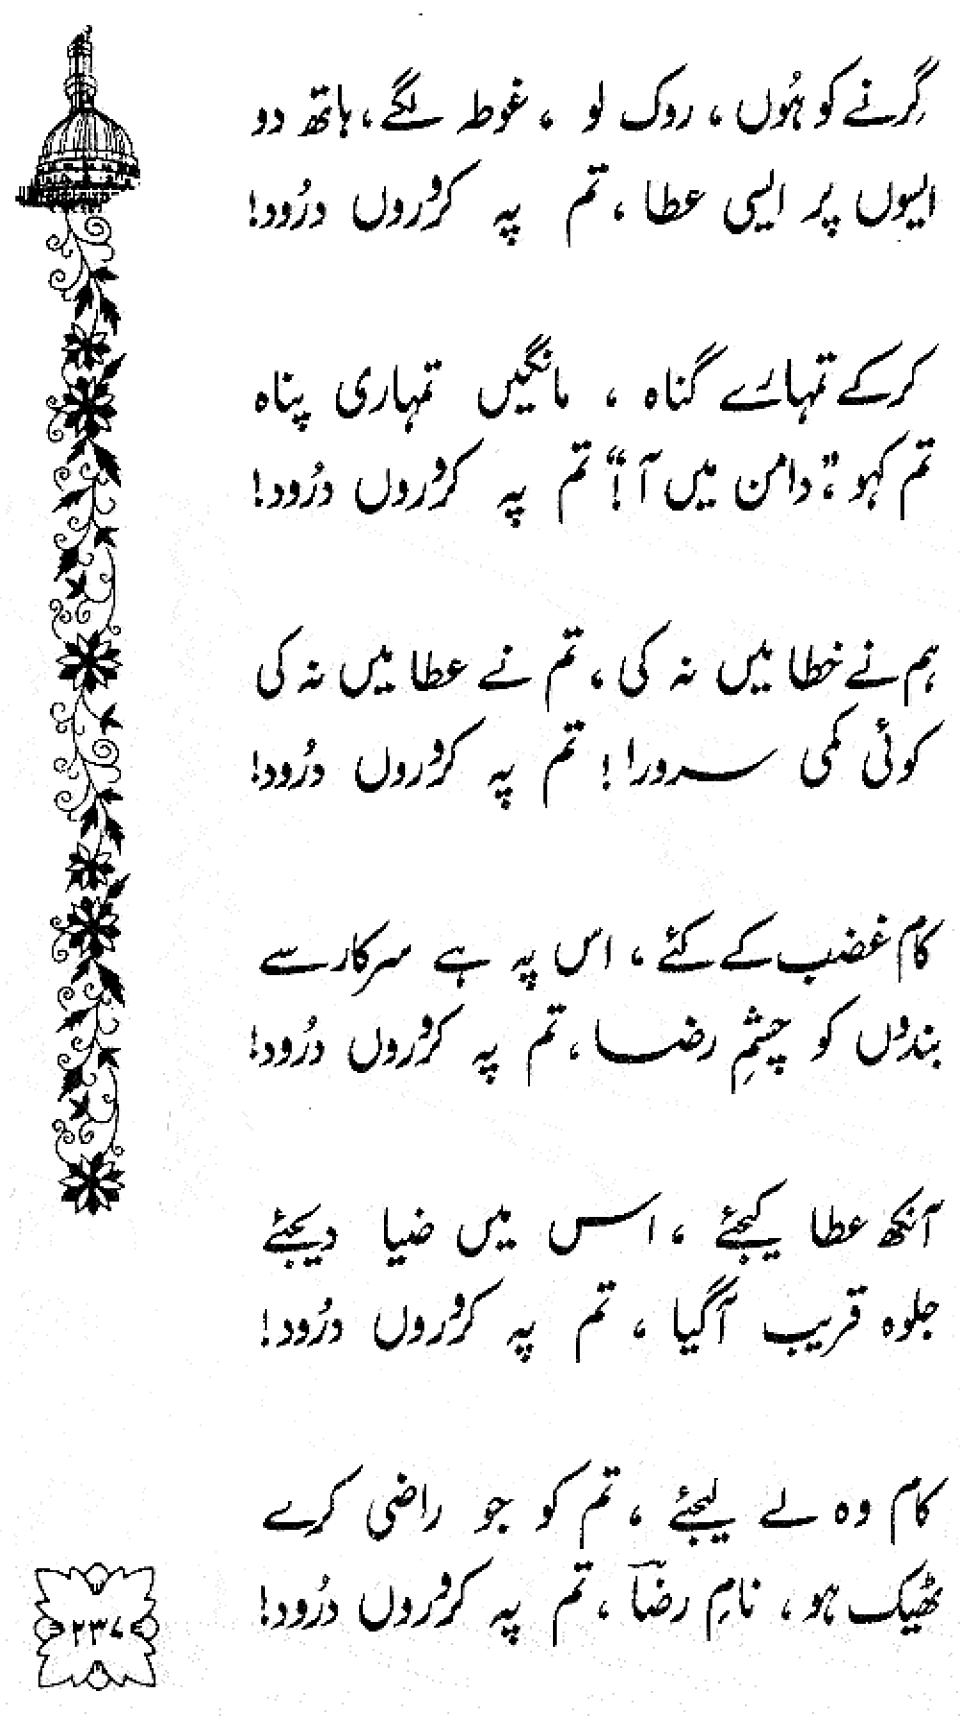 گِرنے کو ہُوں ، روک لو ، غوطہ لگے ، ہاتھ دو
ایسوں پر ایسی عطا ، تم پہ کروروں دُرُود!
کرکے تمہارے گناہ ، مانگیں تمہاری پناہ
تم کہو ”دامن میں آ!“ تم پہ کروروں دُرُود!
ہم نے خطا میں نہ کی ، تم نے عطا میں نہ کی
کوئی کمی سرورا! تم پہ کروروں دُرُود!
کام غضب کے کئے ، اس پہ ہے سرکار سے
بندوں کو چشمِ رضا ، تم پہ کروروں دُرُود!
آنکھ عطا کیجئے ، اس میں ضیا دیجئے
جلوہ قریب آگیا ، تم پہ کروروں دُرُود!
کام وہ لے لیجئے ، تم کو جو راضی کرے
ٹھیک ہو ، نامِ رضؔا ، تم پہ کروروں دُرُود!
۲۳۷